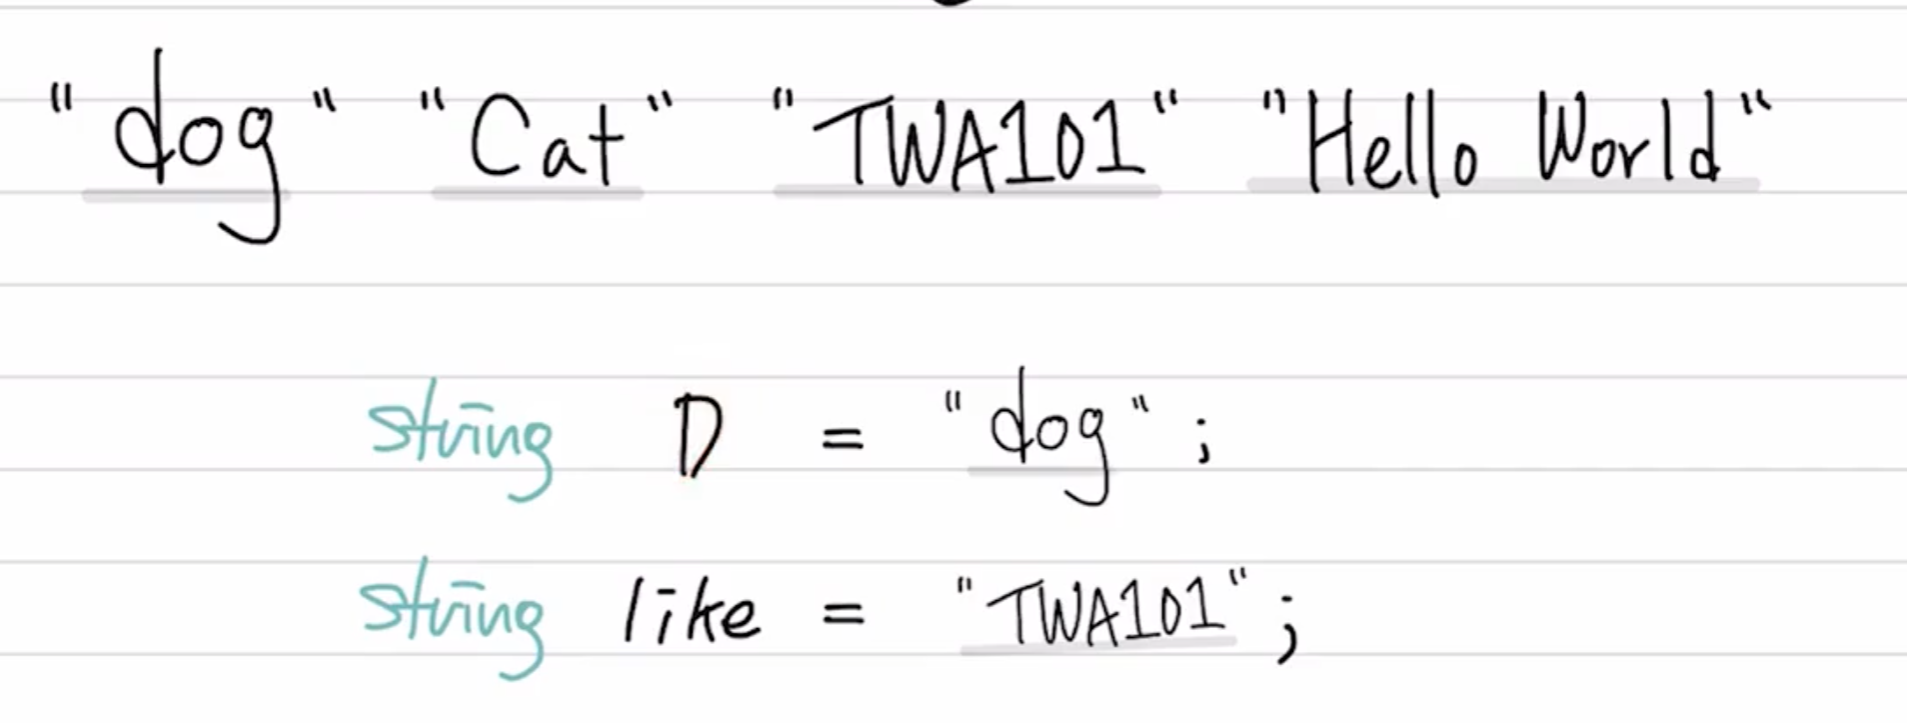 "dog" "Cat" "TWA101" "Hello World"
string D = "dog";
string like = "TWA101";